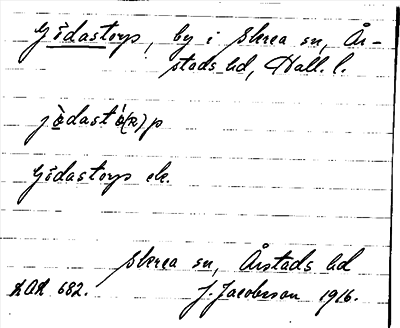 Gödastorp, by i Skrea sn, År-
stads hd, Hall. l.
jö̀dastó(r)p
Gödastorp ek.
Skrea sn, Årstads hd
OAU 682. J. Jacobsson 1916.